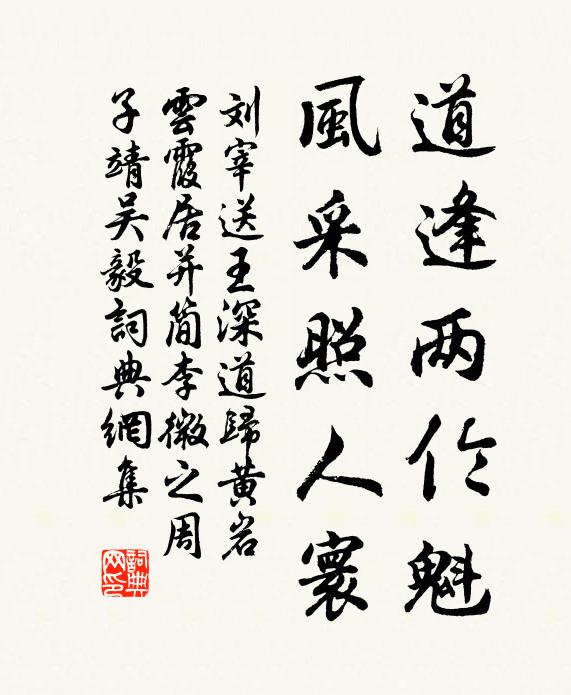 道逢两伶魁
風采照人寰
刘宰送王深道歸黄岩
雲霞居并简李微之周
子靖吴毅詞典網集
詞典网印